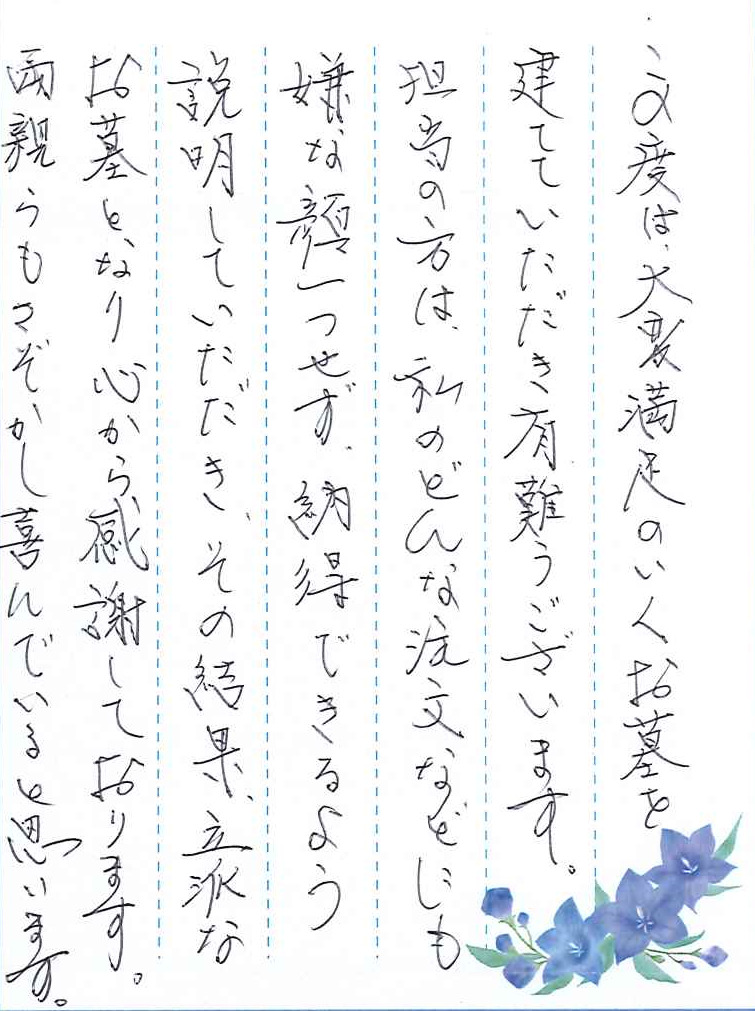 この度は、大変満足のいくお墓を
建てていただき有難うございます。
担当の方は、私のどんな注文などにも
嫌な顔一つせず、納得できるよう
説明していただき、その結果、立派な
お墓となり心から感謝しております。
両親うもさぞかし喜んでいると思います。